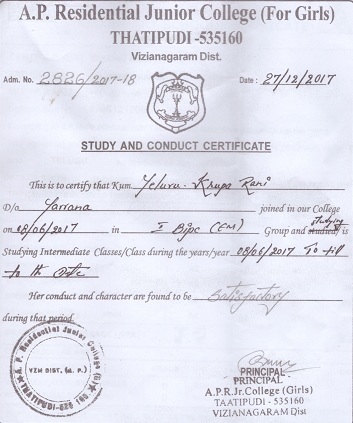 A.P. Residential Junior College (For Girls)
THATIPUDI -535160
Vizianagaram Dist.
Adm. No. 2826/2017-18 Date : 27/12/2017
STUDY AND CONDUCT CERTIFICATE
This is to certify that Kum. Yeluru Krupa Rani
D/o Yarrana joined in our College
on 08/06/2017 in I Bipc (EM) Group and studied studying is
Studying Intermediate Classes/Class during the years/year 08/06/2017 To till
to the date
Her conduct and character are found to be Satisfactory
during that period.
A. P. Residential Junior College (G)
VZM DIST. (A. P.)
THATIPUDI-535 160
PRINCIPAL
PRINCIPAL
A.P.R.Jr.College (Girls)
TAATIPUDI - 535160
VIZIANAGARAM Dist